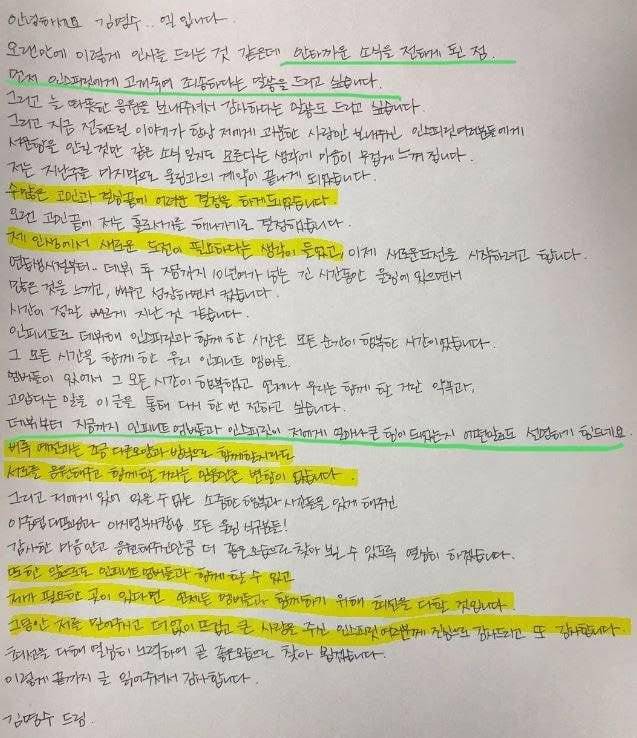 안녕하세요 김명수.. 엘 입니다.
오랜만에 이렇게 인사를 드리는 것 같은데 안타까운 소식을 전하게 된 점.
먼저 인스피릿에게 고개숙여 죄송하다는 말씀을 드리고 싶습니다.
그리고 늘 따뜻한 응원을 보내주셔서 감사하다는 말씀도 드리고 싶습니다.
그리고 지금 전해드릴 이야기가 항상 저에게 과분한 사랑만 보내주신 인스피릿여러분들에게
서운함을 안길 것만 같은 소식 일지도 모른다는 생각에 마음이 무겁게 느껴집니다.
저는 지난주를 마지막으로 울림과의 계약이 끝나게 되었습니다.
수많은 고민과 결심끝에 어려운 결정을 하게되었습니다.
오랜 고민끝에 저는 홀로서기를 해나가기로 결정했습니다.
제 인생에서 새로운 도전이 필요하다는 생각이 들었고, 이제 새로운도전을 시작하려고 합니다.
연습생시절부터.. 데뷔 후 지금까지 10년여가 넘는 긴 시간동안 울림에 있으면서
많은 것을 느끼고, 배우고 성장하면서 컸습니다.
시간이 정말 빠르게 지난 것 같습니다.
인피니트로 데뷔해 인스피릿과 함께 한 시간은 모든 순간이 행복한 시간이었습니다.
그 모든 시간을 함께 한 우리 인피니트 멤버들.
멤버들이 있어서 그 모든 시간이 행복했고 언제나 우리는 함께 할 거란 약속과,
고맙다는 말을 이 글을 통해 다시 한 번 전하고 싶습니다.
데뷔부터 지금까지 인피니트멤버들과 인스피릿이 저에게 얼마나 큰 힘이 되었는지 어떤말로도 설명하기 힘드네요.
비록 예전과는 조금 다른모양과 방식으로 함께할지라도
서로를 응원해주고 함께 할 거라는 믿음만은 변함이 없습니다.
그리고 저에게 있어 잊을 수 없는 소중한 행복과 시간들을 있게 해주신
이중엽대표님과 이지영부사장님 모든 울림 식구분들!
감사한 마음안고 응원해주신만큼 더 좋은모습으로 찾아 뵐 수 있도록 열심히 하겠습니다.
또한 앞으로도 인피니트멤버들과 함께 할 수 있고
제가 필요한 곳이 있다면 언제든 멤버들과 함께하기 위해 최선을 다할 것입니다.
그동안 저를 믿어주시고 더없이 뜨겁고 큰 사랑을 주신 인스피릿여러분께 진심으로 감사드리고 또 감사합니다.
최선을 다해 열심히 노력하여 곧 좋은모습으로 찾아 뵙겠습니다.
이렇게 끝까지 글 읽어주셔서 감사합니다.
김명수 드림.